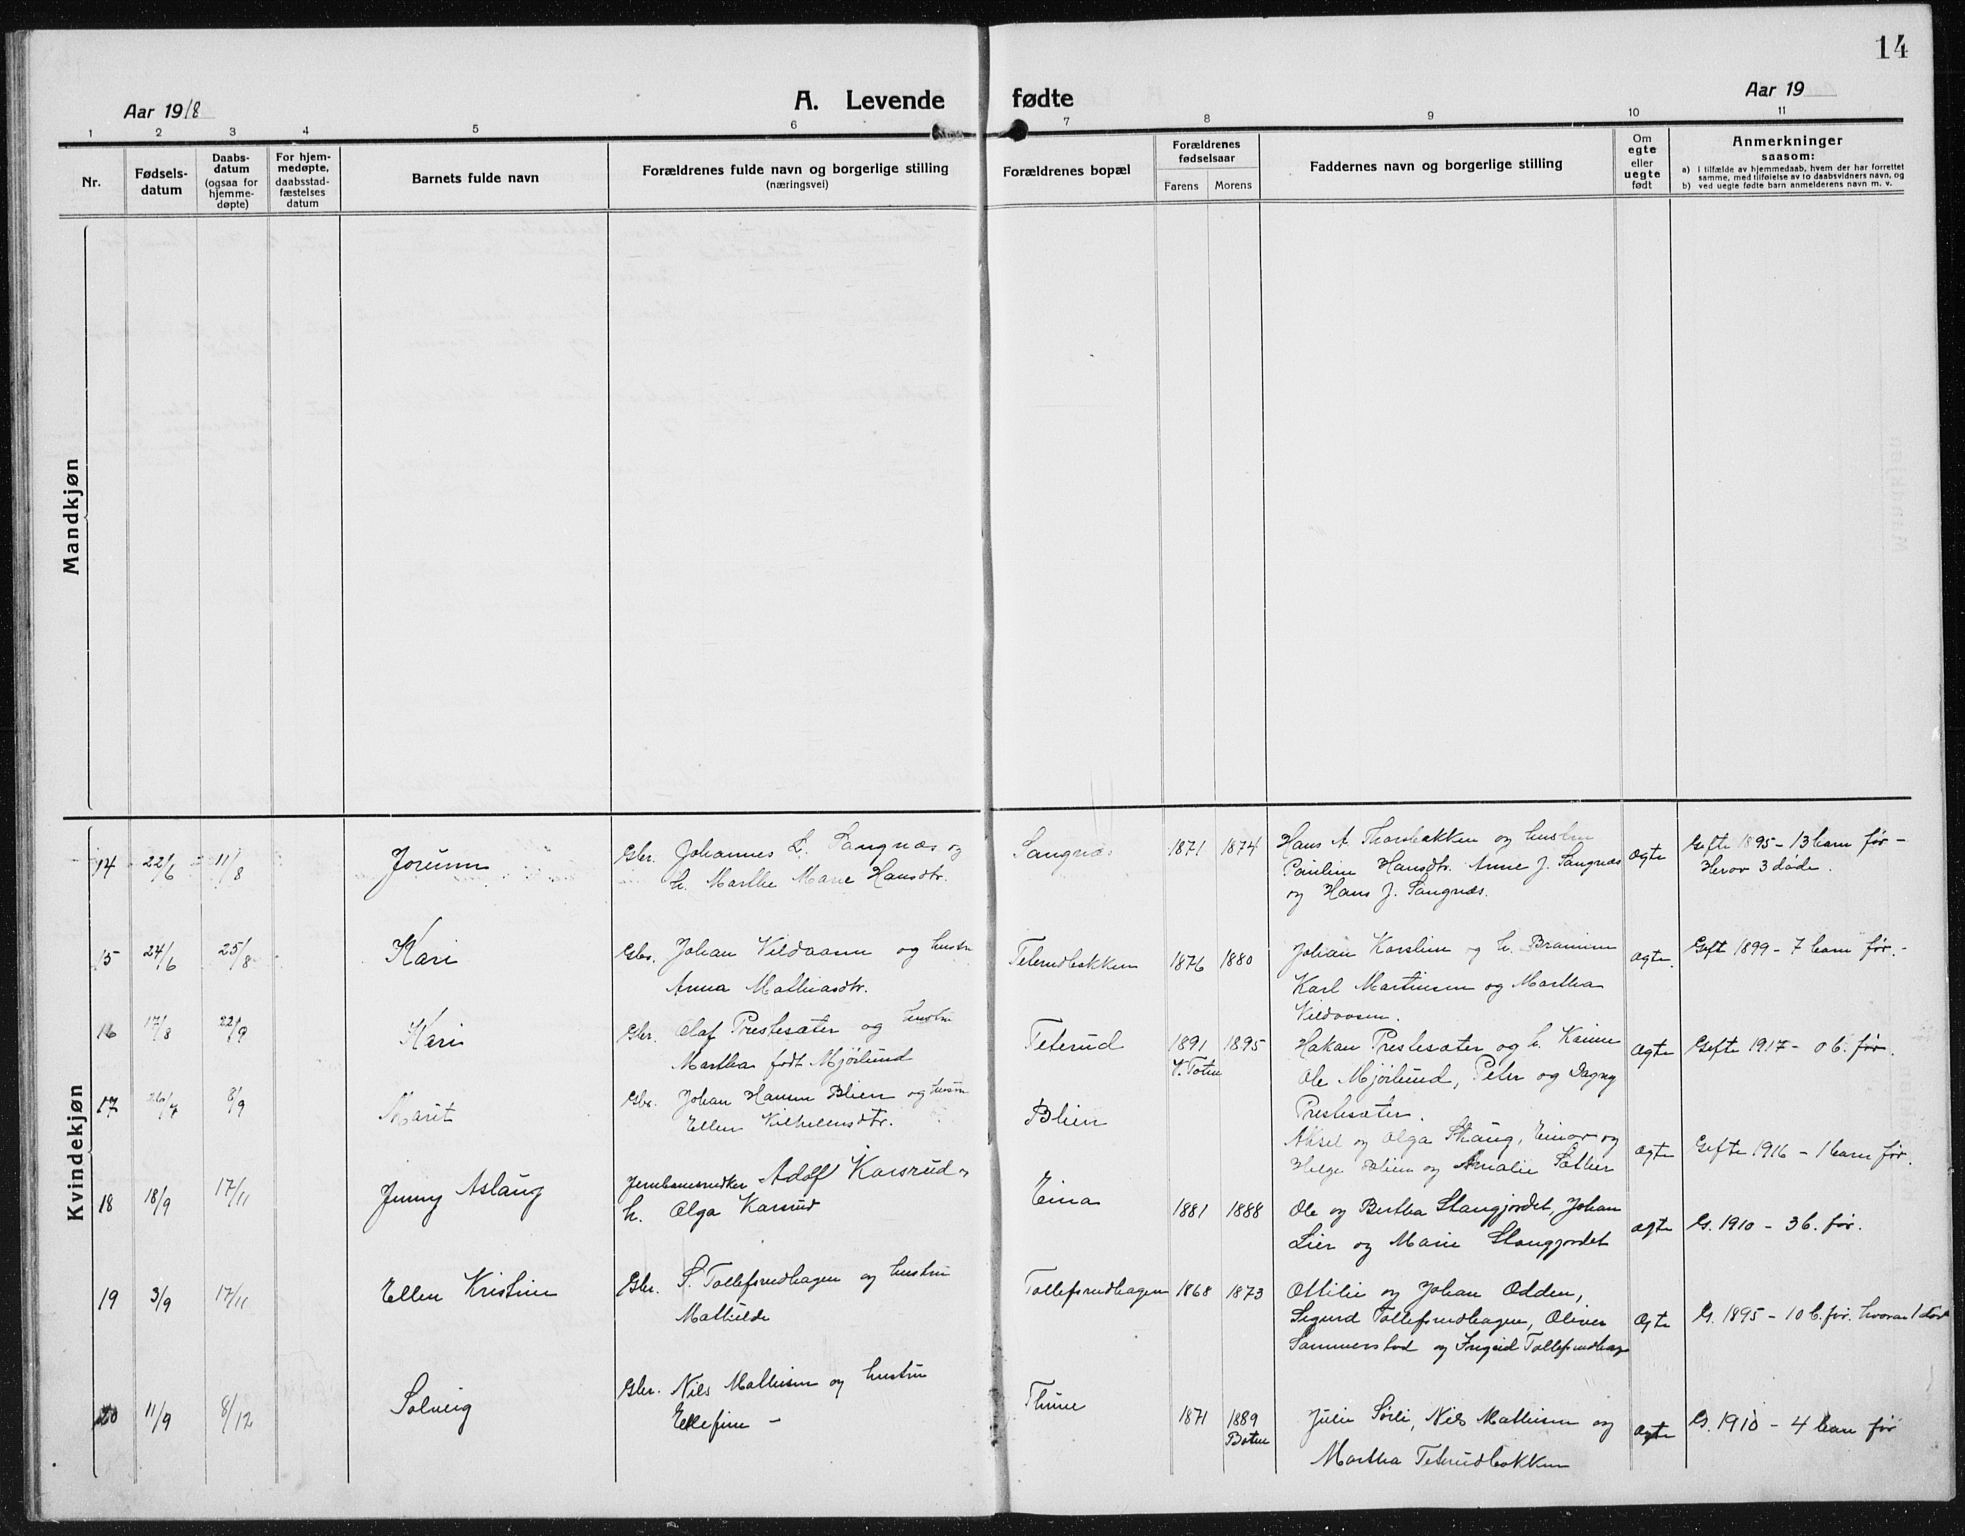 14
Aar 1918
A. Levende fødte
Aar 19
1 2 3 4 5 6 7 8 9 10 11
Nr.
Fødsels-
datum
Daabs-
datum
(ogsaa for
hjemme-
døpte)
For hjem-
medøpte,
daabsstad-
fæstelses
datum
Barnets fulde navn
Forældrenes fulde navn og borgerlige stilling
(næringsvei)
Forældrenes bopæl
Forældrenes
fødselsaar
Farens Morens
Faddernes navn og borgerlige stilling
Om
egte
eller
uegte
født
Anmerkninger
saasom:
a) i tilfælde av hjemmedaab, hvem der har forrettet
samme, med tilføielse av to daabsvidners navn, og
b) ved uegte fødte barn anmelderens navn m. v.
Mandkjøn
Kvindekjøn
14 22/6 11/8 Jorunn
Gbr. Johannes L. Sangnæs og
h. Marthe Marie Hansdtr.
Sangnæs 1871 1874
Hans A. Thonbakken og hustru
Pauline Hansdtr. Anne J. Sangnæs
og Hans J. Sangnæs.
ægte
Gifte 1895 - 13 barn før -
Herav 3 døde.
15 24/6 25/8 Kari
Gbr. Johan Vildaasen og hustru
Anna Mathiasdtr.
Teterudbakken 1876 1880
Johan Karslien og h.
Karl Martinsen og Martha
Vildaasen.
ægte.
Gift 1899 - 7 barn før. -
16 17/8 22/9 Kari
Gbr. Olaf Prestesæter og hustru
Martha født Mjørlund
Teterud 1891 1895
V. Toten
Hakan Prestesæter og h. Karine
Ole Mjørlund, Peter og Dagny
Prestesæter.
ægte
Gifte 1917 - 0 b. før.
17 26/7 8/9 Marit
Gbr. Johan Hansen Blien og hustru
Ellen Vilhelmsdtr.
Blien
Aksel og Olga Skaug, Einar og
Helge Blien og Amalie Sæther
ægte
Gifte 1916 - 1 barn før.
18 18/9 17/11 Jenny Aslaug
Adolf Karsrud og
h. Olga Karsrud
Eina 1881 1888
Ole og Bertha Stangjordet, Johan
Lier og Marie Stangjordet
ægte
G. 1910 - 3 b. før.
19 3/9 17/11 Ellen Kristine
Gbr. S. Tollefsrudhagen og hustru
Mathilde
Tollefsrudhagen 1868 1873
Ottilie og Johan Odden,
Sigurd Tollefsrudhagen, Oliver
Sammerstad og Ingrid Tollefsrudhag
ægte
G. 1895 - 10 b. før. hvorav 1 død
20 11/9 8/12 Solveig
Gbr. Nils Mathisen og hustru
Ellefine -
Thune 1871 1889
Julie Sørli, Nils Mathisen og
Martha Teterudbakken
ægte
G. 1910 - 4 barn før